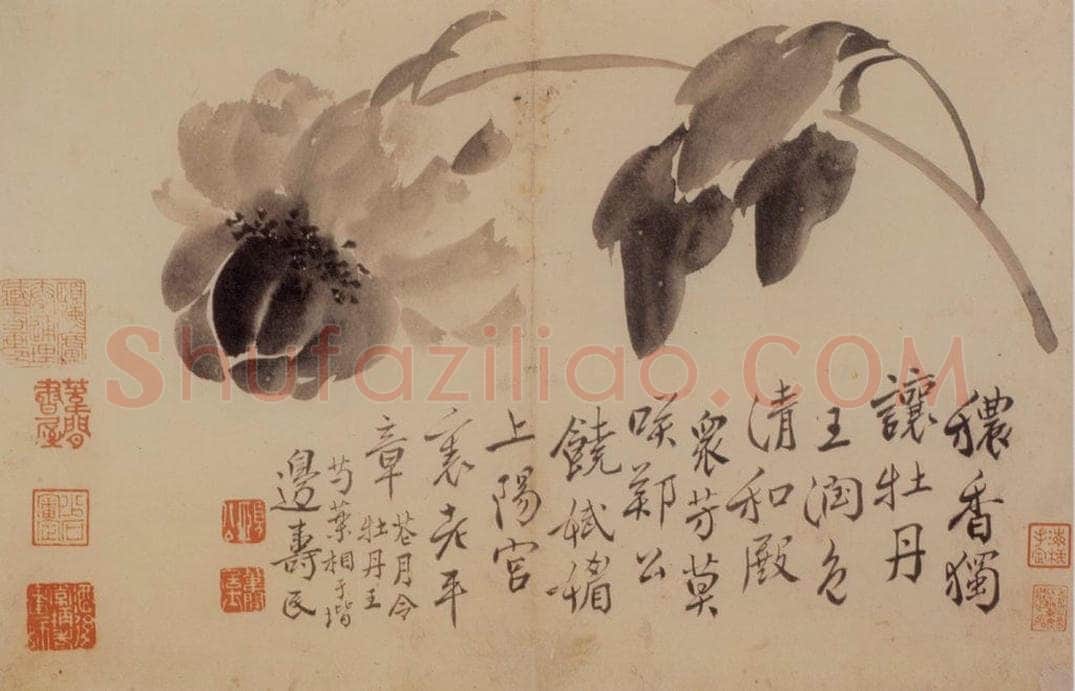 穠香獨
讓牡丹
王润色
清和殿
衆芳莫
咲鄭公
饒娬媚
上陽宮
裏老平
章
花月令
牡丹王
芍藥相于堦
邊壽民
葦間書屋
Shufaziliao.COM